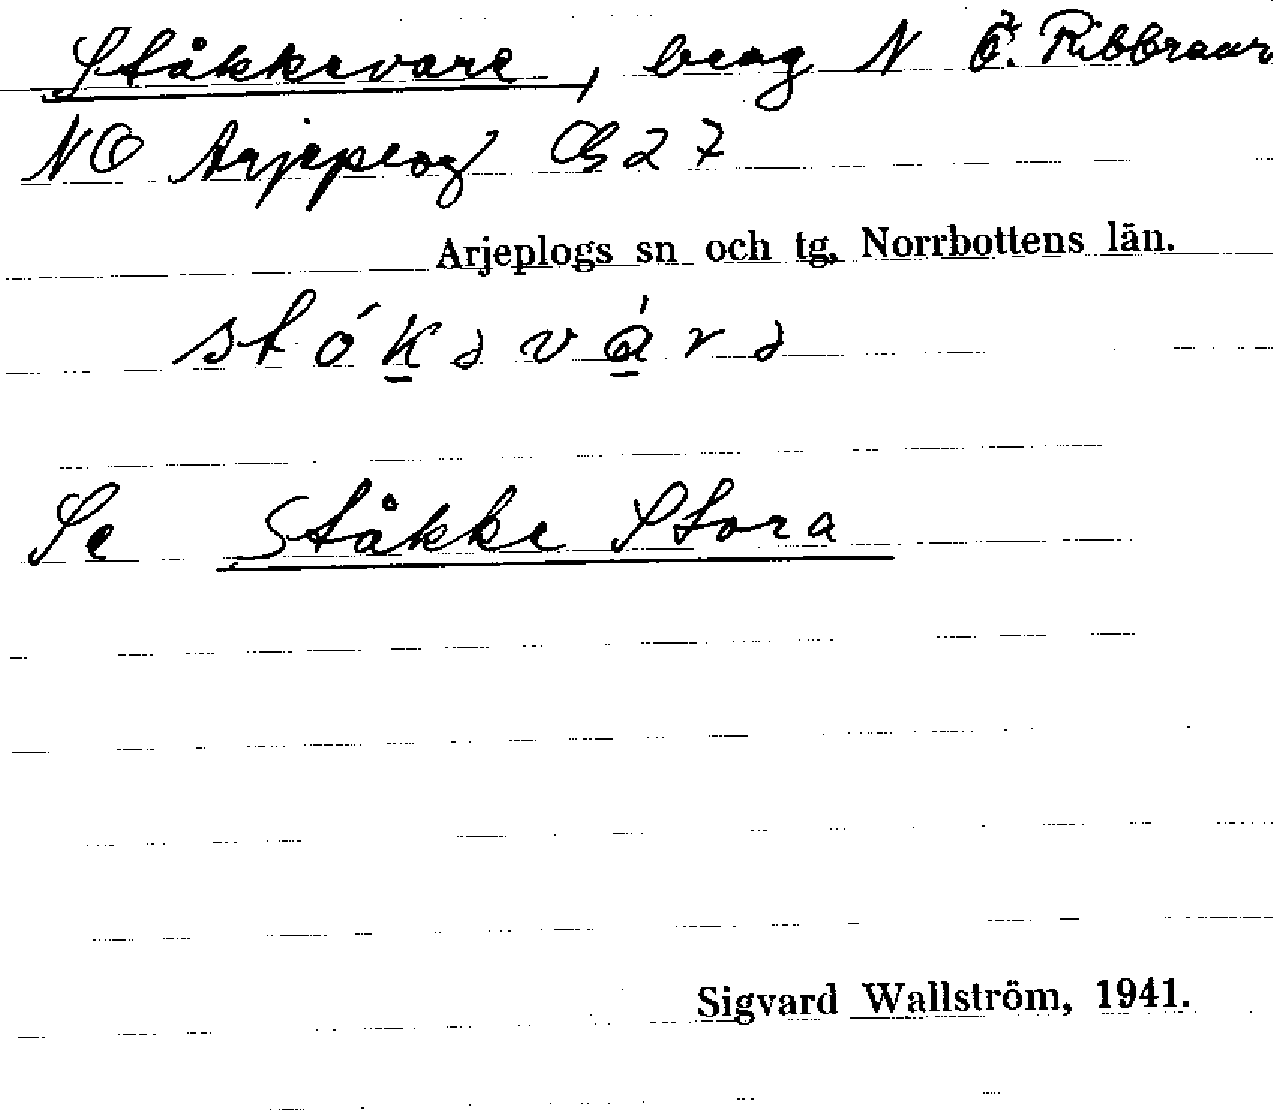 Ståkkevare, berg N Ö. Ribbraur
NO Arjeplog G 27
Arjeplogs sn och tg, Norrbottens län.
stók̲əvá̲rə
Se Ståkke Stora
Sigvard Wallström, 1941.